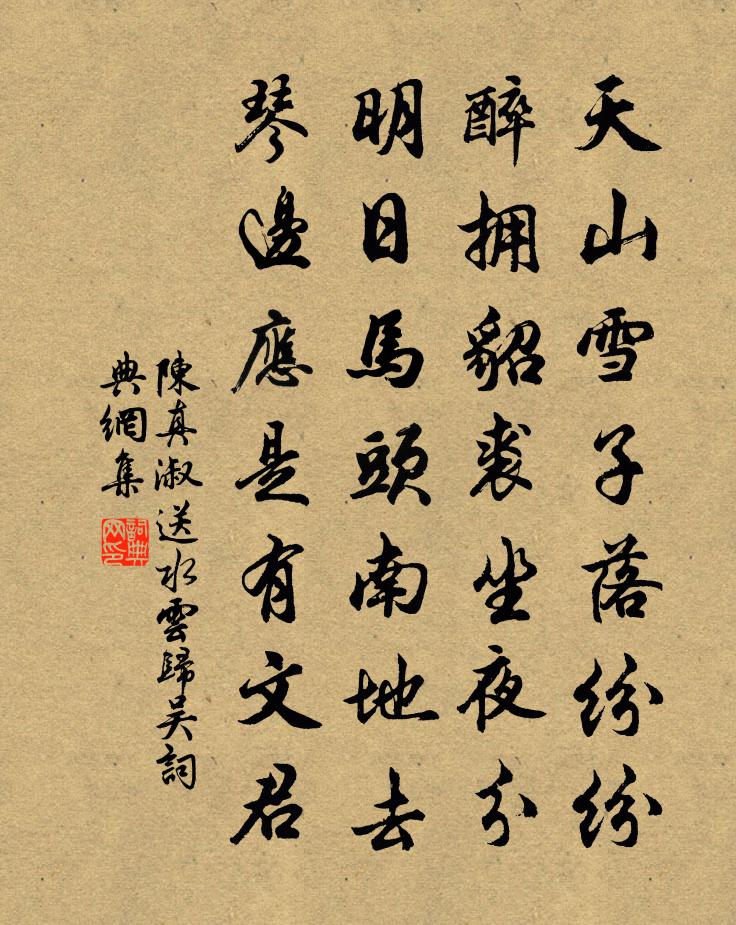 天山雪子落紛紛
醉擁貂裘坐夜分
明日馬頭南地去
琴邊應是有文君
陳真淑送水雲歸吳詞
典網集
詞典
网印